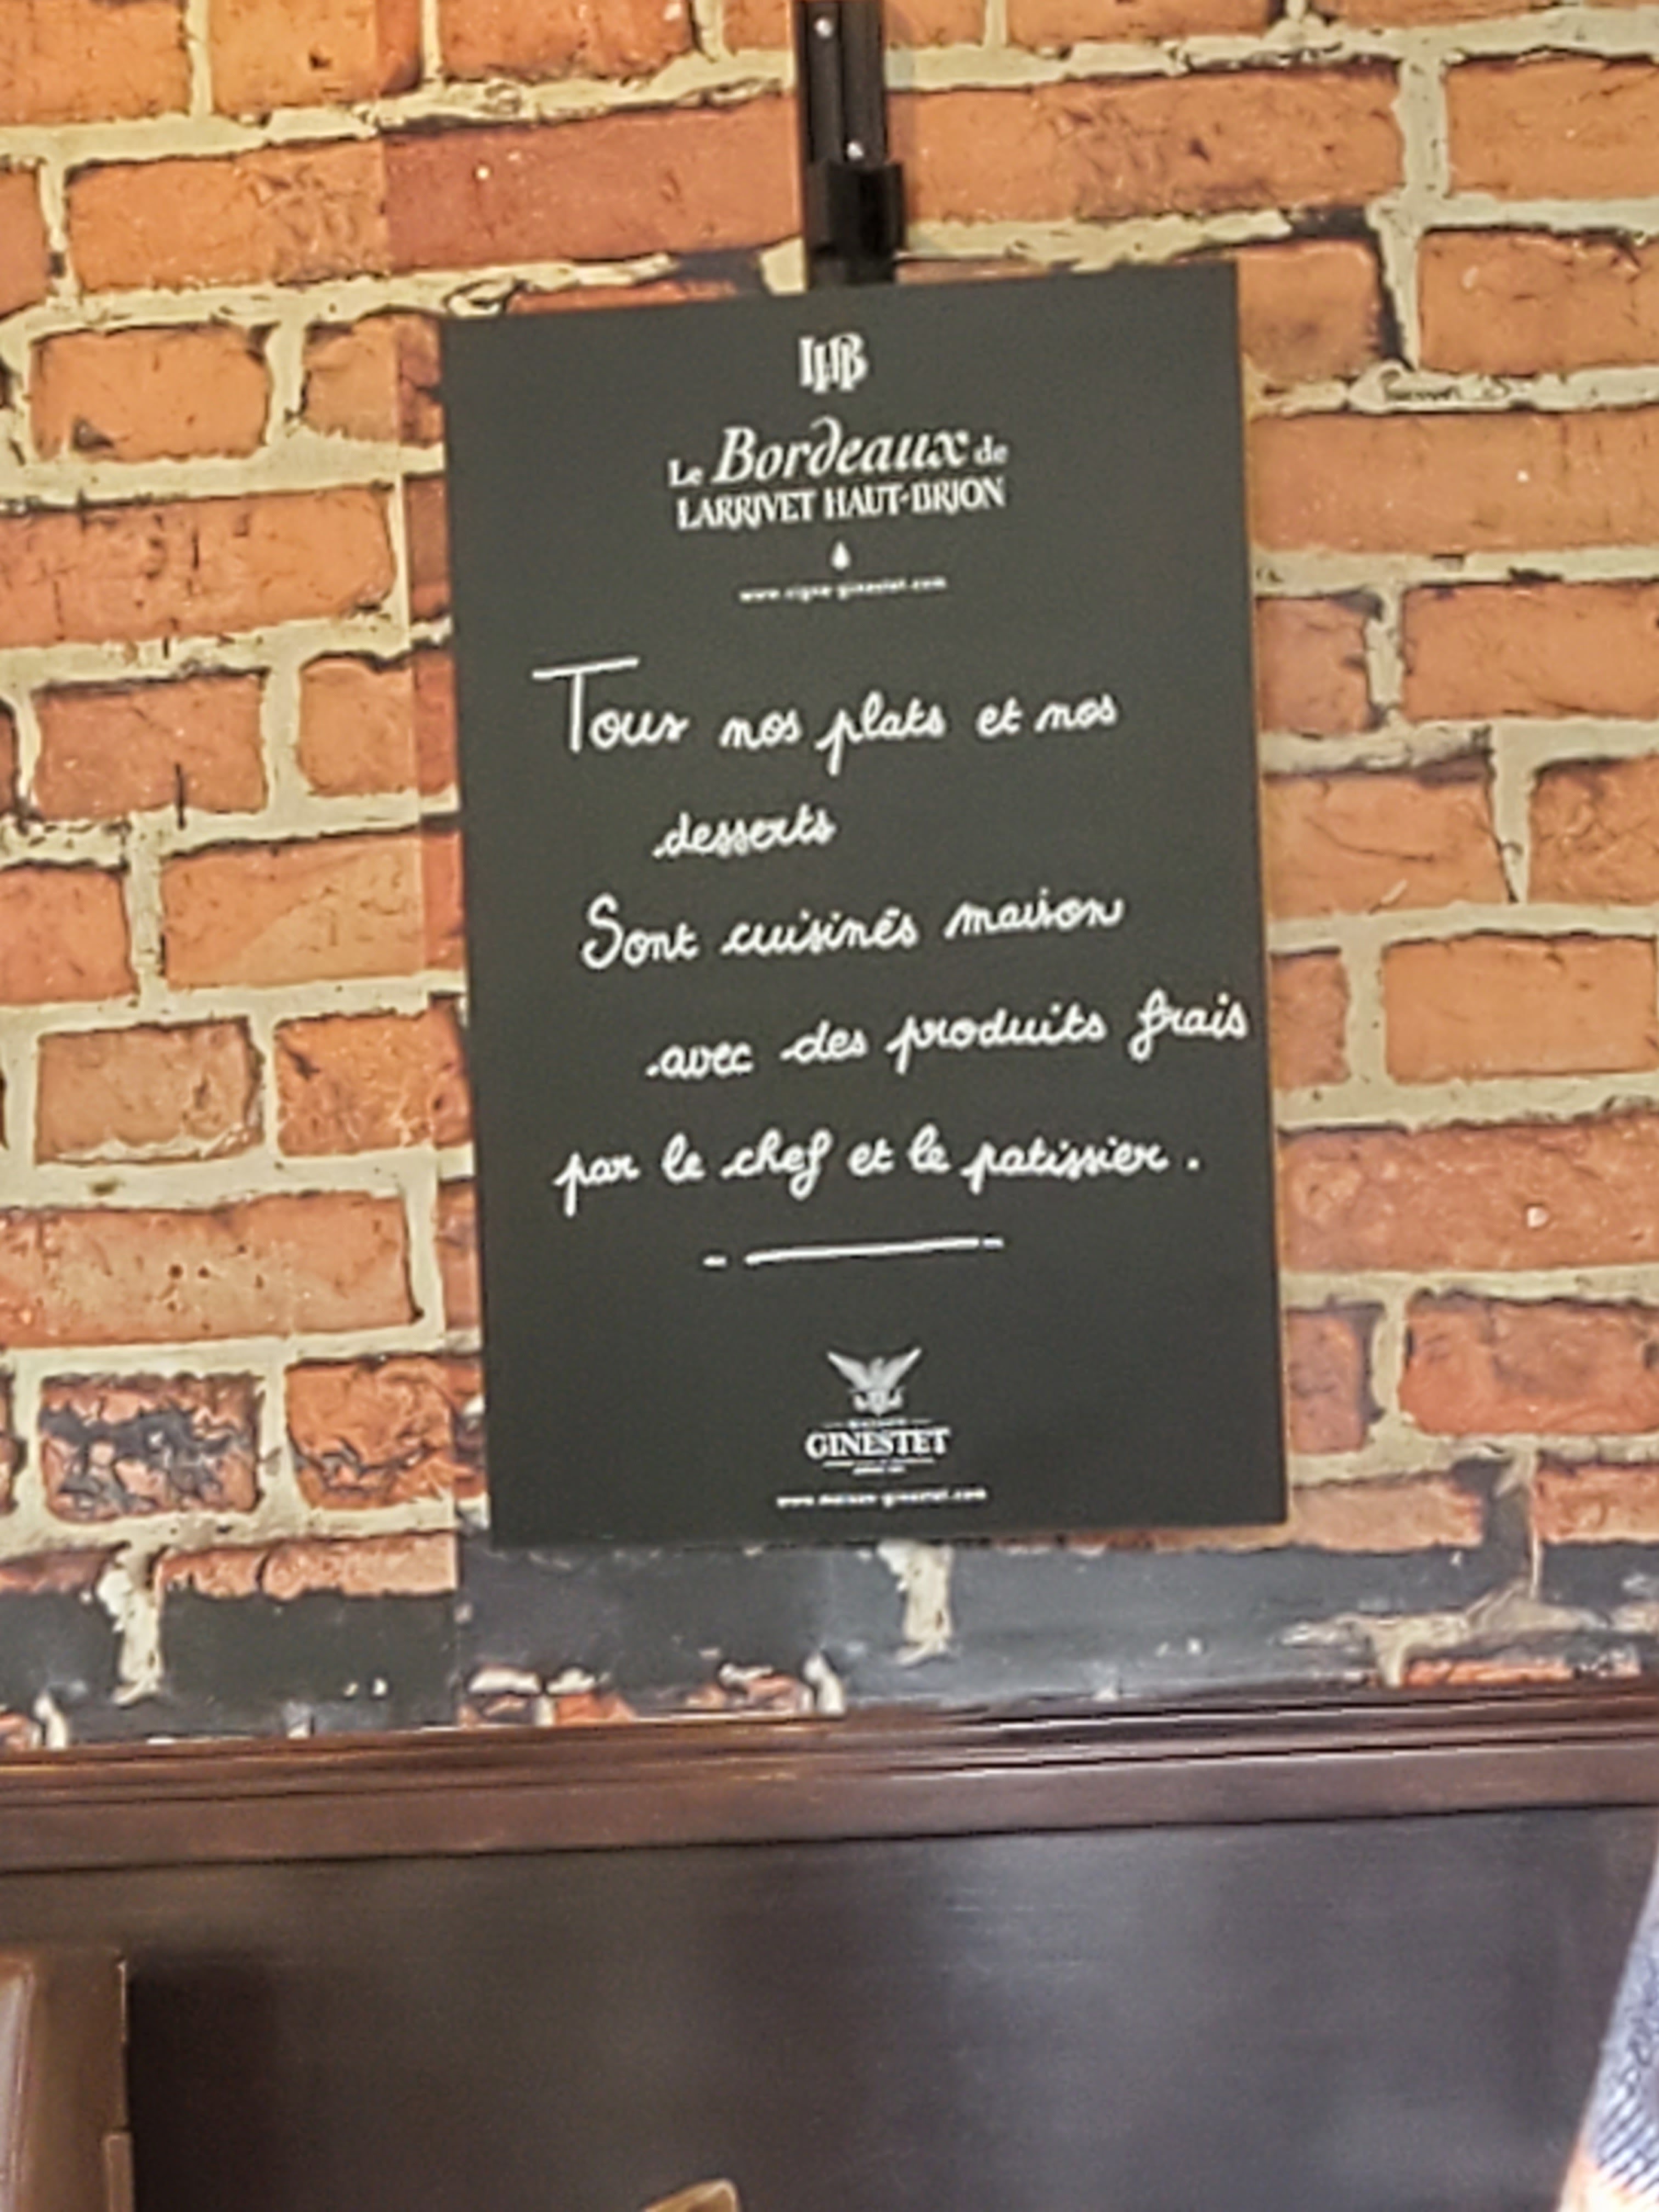 LHB
Le Bordeaux de
LARRIVET HAUT-BRION
Tous nos plats et nos
desserts
Sont cuisinés maison
avec des produits frais
par le chef et le patissier.
MAISON
GINESTET
www.maison-ginestet.com